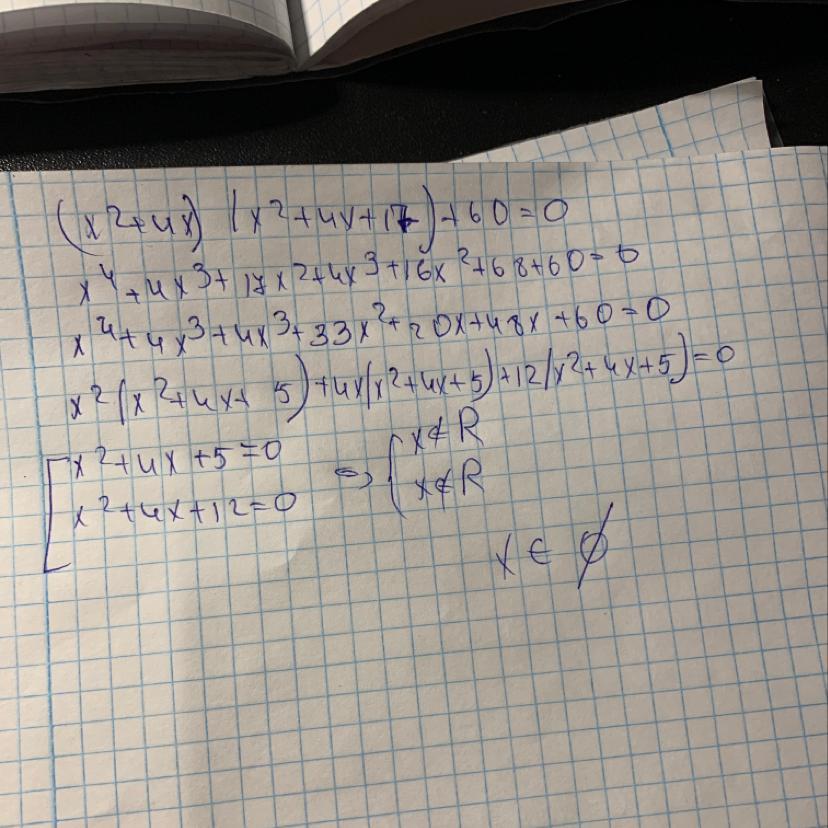 (x²+4x) (x²+4x+17)+60=0
x⁴+4x³+17x²+4x³+16x²+68+60=0
x⁴+4x³+4x³+33x²+20x+48x+60=0
x²(x²+4x+5)+4x(x²+4x+5)+12(x²+4x+5)=0
[x²+4x+5=0 => {x∉R
x²+4x+12=0 x∉R
x∈∅